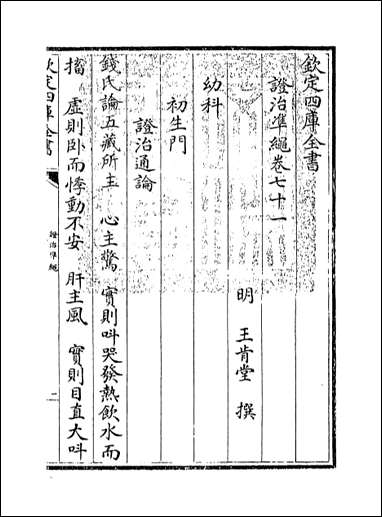 欽定四庫全書
證治準繩卷七十一
明 王肯堂 撰
幼科
初生門
證治通論
錢氏論五藏所主 心主驚 實則叫哭發熱飲水而
搐 虛則卧而悸動不安 肝主風 實則目直大叫
欽定四庫全書
證治準繩